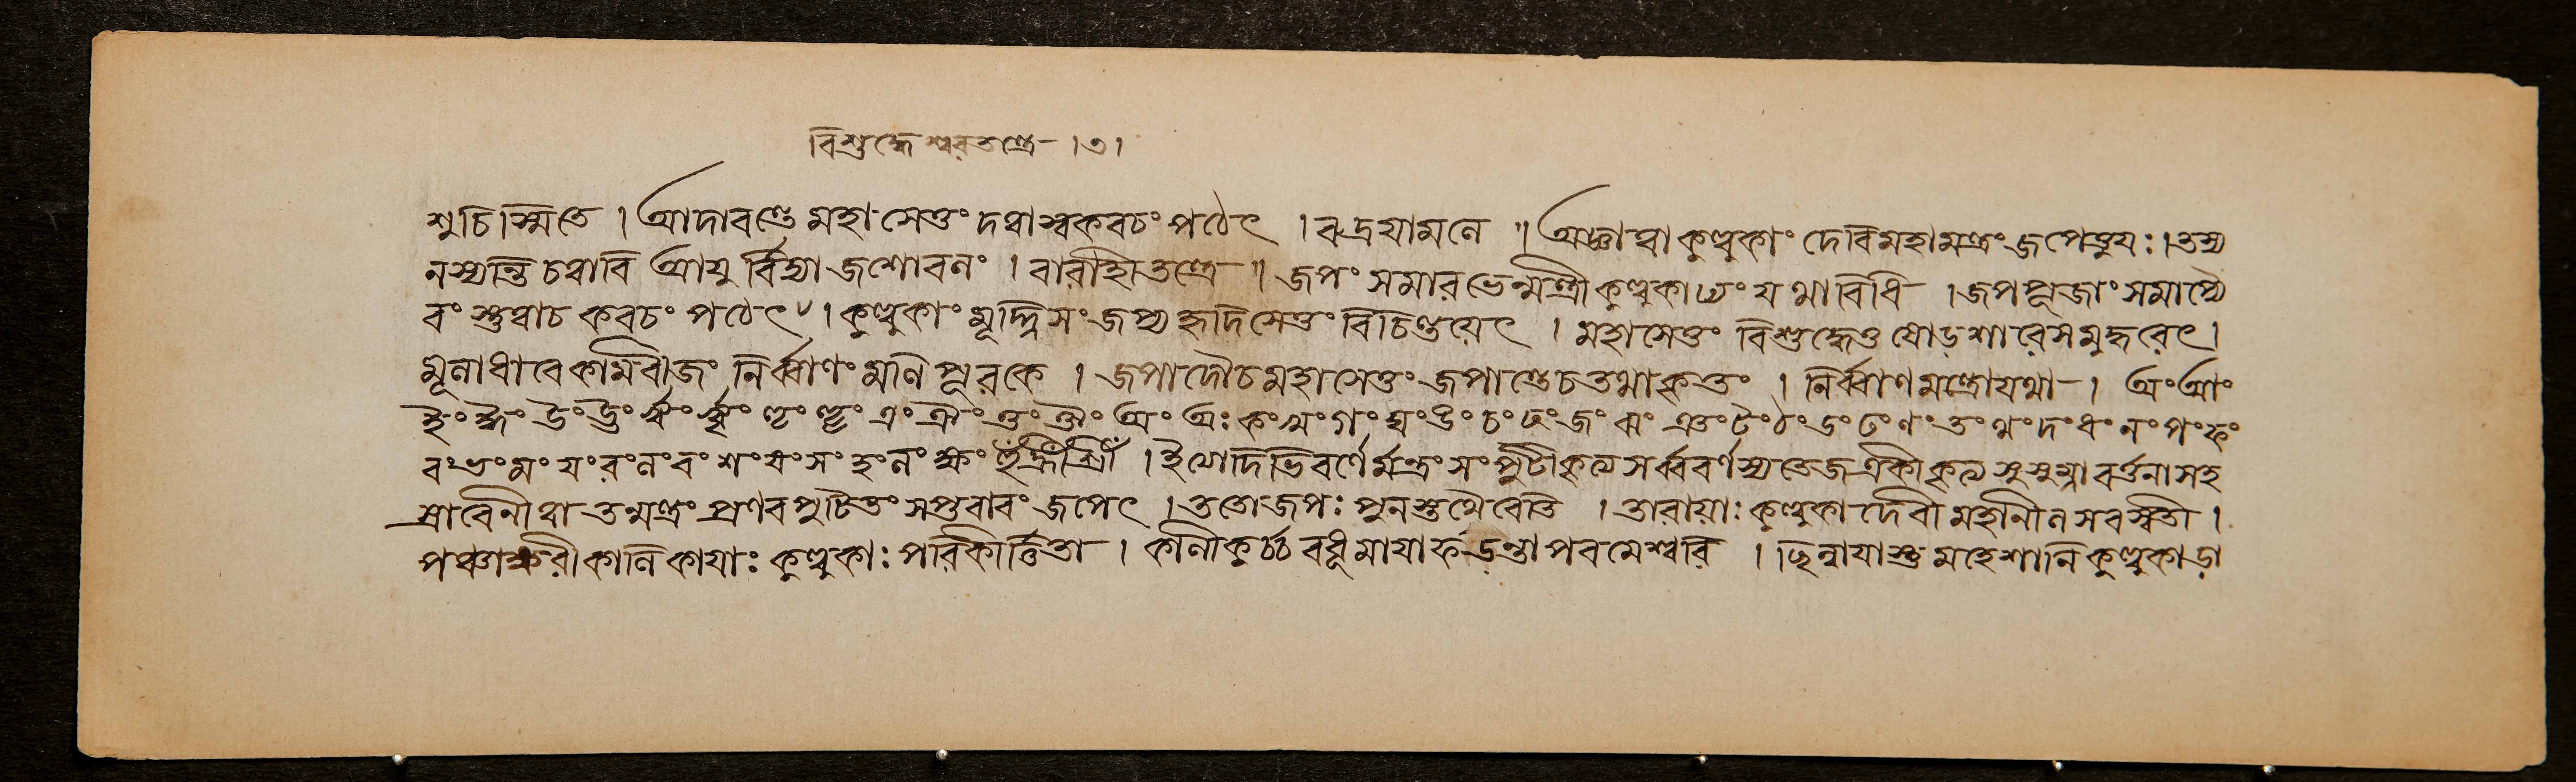 বিশুদ্ধেশ্বরতন্ত্রে ।৩।
শুচিস্মিতে । আদাবন্তে মহাসেতুং দত্বাস্বকবচং পঠেৎ । রুদ্রযামলে ॥ অজ্ঞাত্বা কুল্লুকাং দেবি মহামন্ত্রং জপেত্তুযঃ । তস্য
নস্যন্তি চত্বারি আয়ুর্বিদ্যা জশোবলং । বারাহীতন্ত্রে ॥ জপং সমারভেন্মন্ত্রী কুল্লুকাঢ্যং যথাবিধি । জপপূজাং সমাপ্যৈ
বং স্তুত্বাচ কবচং পঠেৎ । কুল্লুকাং মূর্দ্ধ্নিসং জপ্য হৃদিসেতুং বিচিন্তয়েৎ । মহাসেতুং বিশুদ্ধেও ষোড়শারেসমুদ্ধরেৎ ।
মূলাধারে কামবীজং নির্ব্বাণং মণিপূরকে । জপাদৌচমহাসেতুং জপান্তেচ তথাকৃতং । নির্ব্বাণমন্ত্রোযথা । অং আং
ইং ঈং উং ঊং ঋং ৠং ঌং ৡং এং ঐং ওং ঔং অং অঃ কং খং গং ঘং ঙং চং ছং জং ঝং ঞং টং ঠং ডং ঢং ণং তং থং দং ধং নং পং ফং
বং ভং মং যং রং লং বং শং ষং সং হং লং ক্ষং হুঁ হ্রীঁ শ্রীঁ । ইত্যেদভিবর্ণের্মন্ত্রং সংপুটীকৃত্য সর্ব্ববর্ণস্য তেজ একীকৃত্য সুসুম্নাবর্ত্তনা সহ
স্রারেনীত্বা তন্মন্ত্রং প্রণবপুটিতং সপ্তবারং জপেৎ । ততোজপঃ পুনস্তথৈবেতি । তারায়াঃ কুল্লুকা দেবী মহানীলসরস্বতী ।
পঞ্চাক্ষরী কালিকায়াঃ কুল্লুকাঃ পরিকীর্ত্তিতা । কালীকুর্চ্চ বধূ মায়া ফড়ন্তা পরমেশ্বরি । ছিন্নায়াস্তু মহেশানি কুল্লুকাড়া